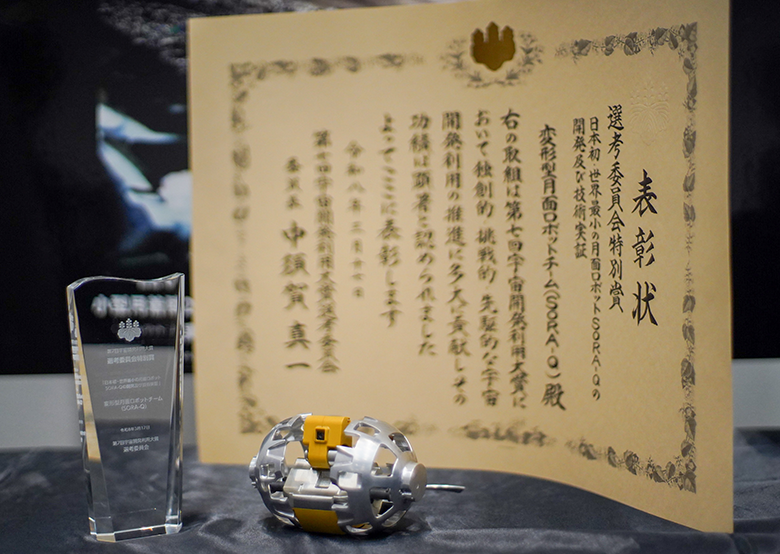 表彰状
選考委員会特別賞
日本初・世界最小の月面ロボットSORA-Qの
開発及び技術実証
変形型月面ロボットチーム(SORA-Q) 殿
右の取組は第七回宇宙開発利用大賞に
おいて独創的 挑戦的 先駆的な宇宙
開発利用の推進に多大に貢献しその
功績は顕著と認められました
よってここに表彰します
令和八年三月十七日
第七回宇宙開発利用大賞選考委員会
委員長 中須賀真一
第7回宇宙開発利用大賞
選考委員会特別賞
「日本初・世界最小の月面ロボット
SORA-Qの開発及び技術実証」
変形型月面ロボットチーム
(SORA-Q)
令和8年3月17日
第7回宇宙開発利用大賞
選考委員会